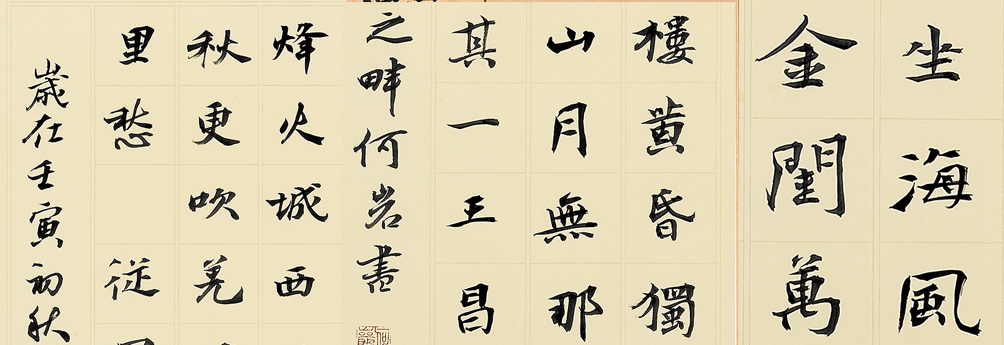 坐海風
金閨萬
樓黄昏獨
山月無那
其一王昌
之畔何岩書
烽火城西
秋更吹羌
里愁 從
歲在壬寅初秋